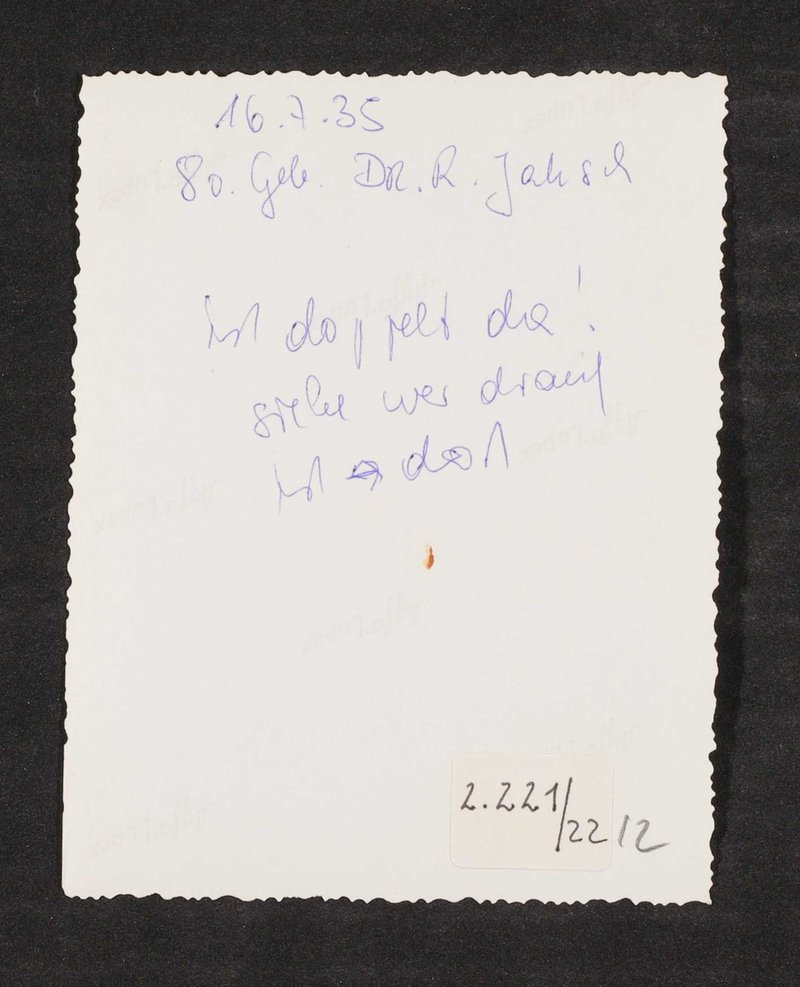 16.7.35
80. Geb. DR. R. Jaksch
ist doppelt da!
siehe wer drauf
ist dort
2.221/22/2